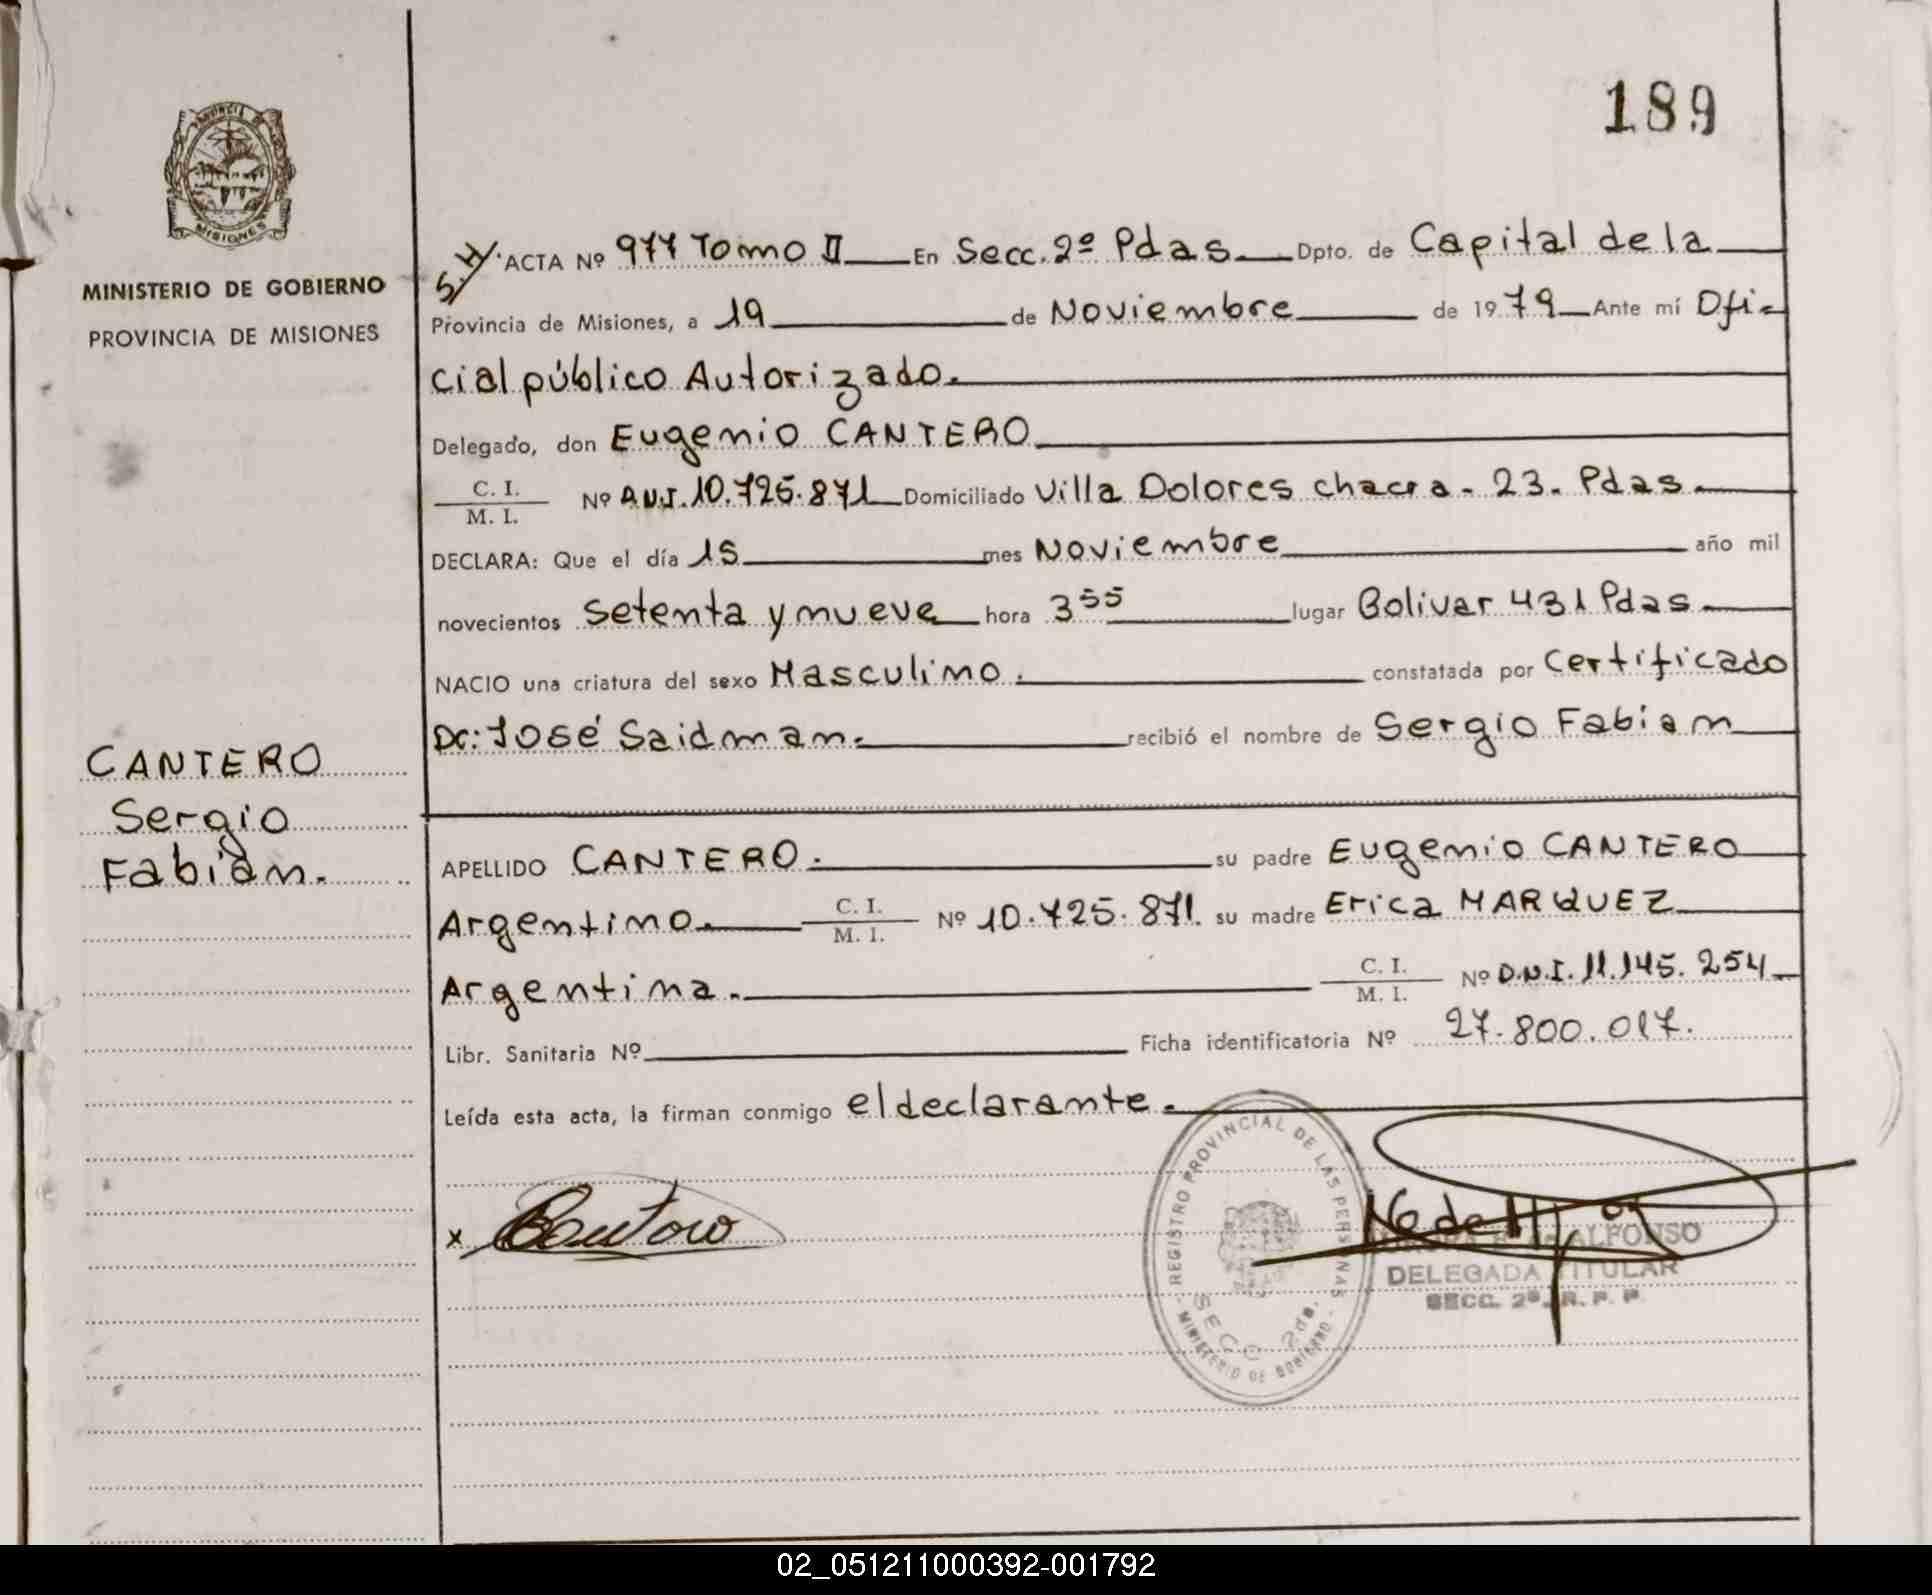 189
PROVINCIA DE
MISIONES
MINISTERIO DE GOBIERNO
PROVINCIA DE MISIONES
CANTERO
Sergio
Fabián.
S.H. ACTA Nº 977 Tomo II En Secc. 2º Pdas Dpto. de Capital de la
Provincia de Misiones, a 19 de Noviembre de 1979 Ante mí Ofi-
cial público Autorizado.
Delegado, don Eugenio CANTERO
C. I.
M. I. Nº D.N.I. 10.725.871 Domiciliado Villa Dolores chacra - 23. Pdas.
DECLARA: Que el día 15 mes Noviembre año mil
novecientos Setenta y nueve hora 3 55 lugar Bolivar 431 Pdas.
NACIO una criatura del sexo Masculino. constatada por Certificado
Dr: José Saidman. recibió el nombre de Sergio Fabian
APELLIDO CANTERO. su padre Eugenio CANTERO
Argentino. C. I.
M. I. Nº 10.725.871. su madre Erica MARQUEZ
Argentina. C. I.
M. I. Nº D.N.I. 11.145.254
Libr. Sanitaria Nº Ficha identificatoria Nº 27.800.017.
Leída esta acta, la firman conmigo el declarante.
x Cantero
REGISTRO PROVINCIAL DE LAS PERSONAS
SECC 2da.
MINISTERIO DE GOBIERNO
ALFONSO
DELEGADA TITULAR
SECC. 2ª. R. P. P.
02_051211000392-001792